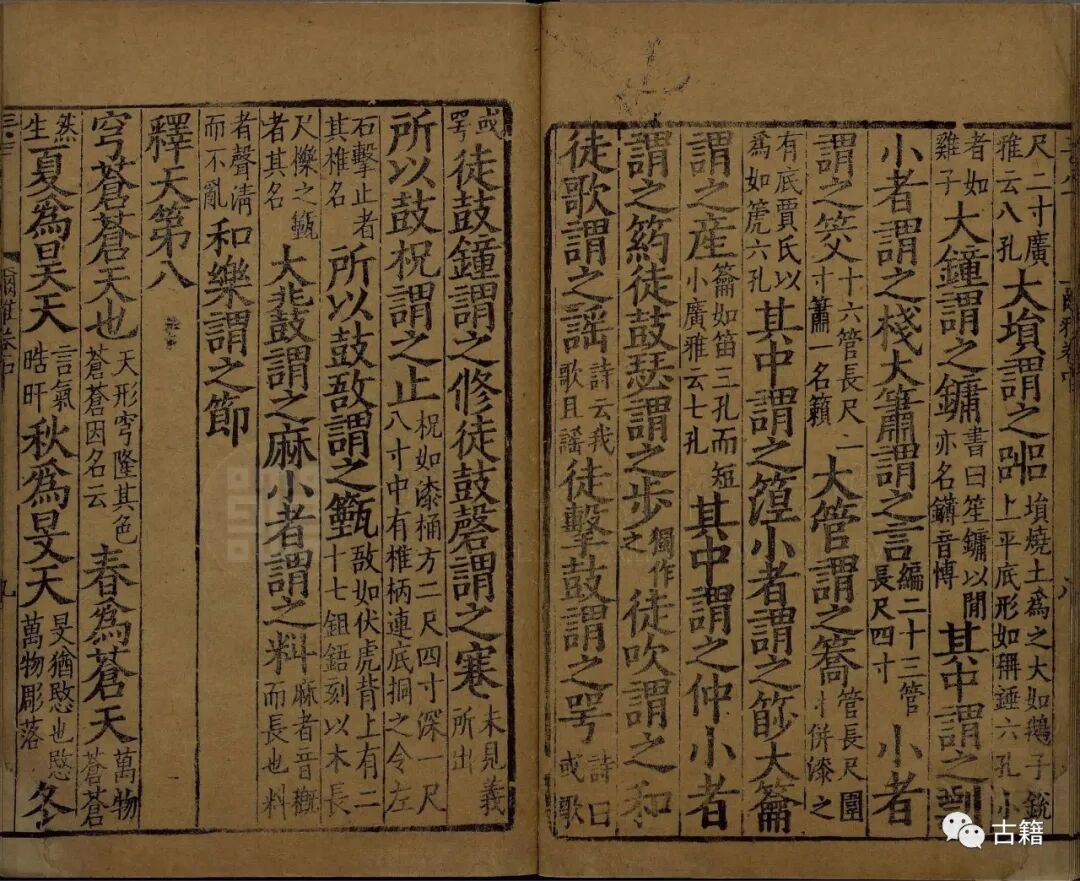 尺二寸廣雅云八孔大塤謂之嘂塤燒土爲之大如鵝子銳上平底形如稱錘六孔小
者如雞子大鐘謂之鏞書曰笙鏞以閒亦名鑮音愽其中謂之剽
小者謂之棧大簫謂之言編二十三管長尺四寸小者
謂之筊十六管長尺二寸簫一名籟大管謂之簥管長尺圍寸併漆之
有底賈氏以爲如箎六孔其中謂之篞小者謂之篎大籥
謂之産籥如笛三孔而短小廣雅云七孔其中謂之仲小者
謂之箹徒鼓瑟謂之步獨作之徒吹謂之和
徒歌謂之謡詩云我歌且謡徒擊鼓謂之咢詩曰或歌
或咢徒鼓鐘謂之修徒鼓磬謂之寋未見義所出
所以鼓柷謂之止柷如漆桶方二尺四寸深一尺八寸中有椎柄連底挏之令左
石擊止者其椎名所以鼓敔謂之籈敔如伏虎背上有二十七鉏鋙刻以木長
尺櫟之籈者其名大鼗謂之麻小者謂之料麻者音概而長也料
者聲清而不亂和樂謂之節
釋天第八
穹蒼蒼天也天形穹隆其色蒼蒼因名云春爲蒼天萬物蒼蒼
然生夏爲昊天言氣晧旰秋爲旻天旻猶愍也愍萬物彫落冬
九
古籍